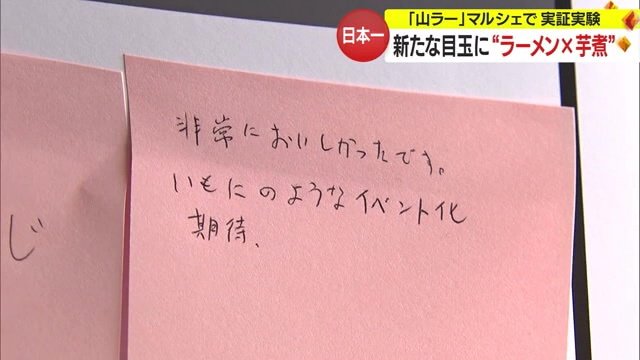 日本一
「山ラー」マルシェで 実証実験
新たな目玉に“ラーメン×芋煮”
非常においしかったです。
いもにのようなイベント化
期待、
じ